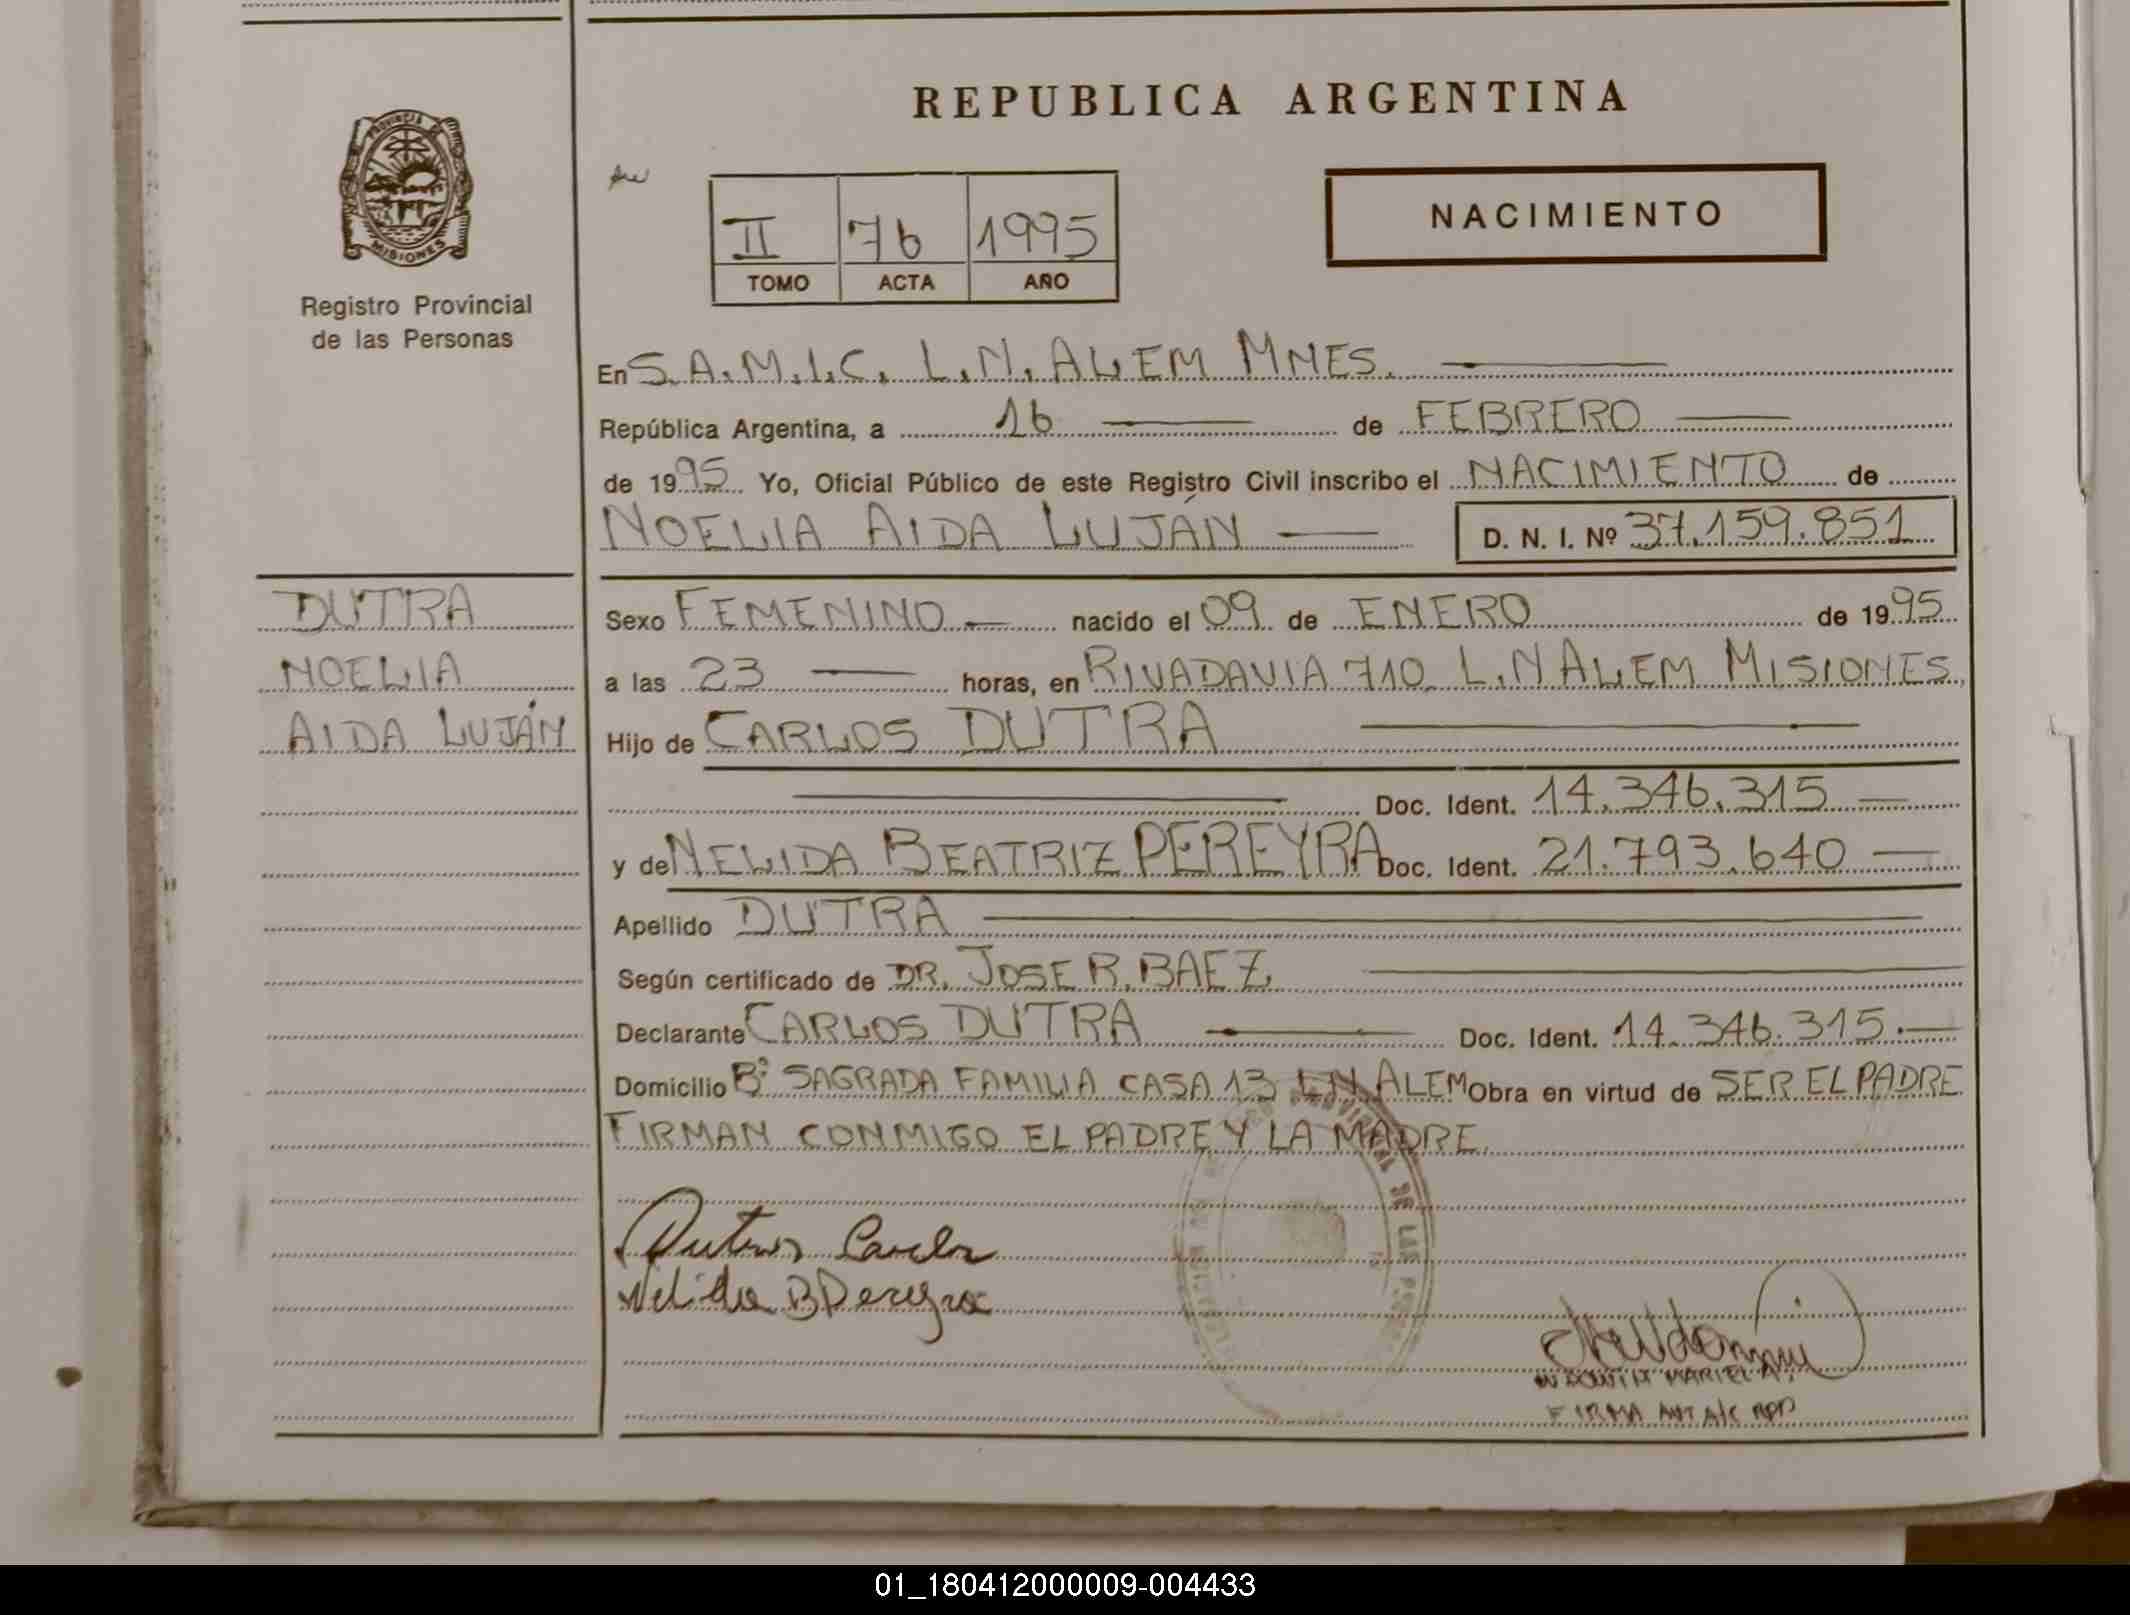 REPUBLICA ARGENTINA
PROVINCIA DE
MISIONES
Registro Provincial
de las Personas
II 76 1995
TOMO ACTA AÑO
NACIMIENTO
En S.A.M.I.C. L.N. ALEM MNES.
República Argentina, a 16 de FEBRERO
de 1995 Yo, Oficial Público de este Registro Civil inscribo el NACIMIENTO de
NOELIA AIDA LUJÁN D. N. I. Nº 37.159.851
DUTRA
NOELIA
AIDA LUJÁN
Sexo FEMENINO nacido el 09 de ENERO de 1995
a las 23 horas, en RIVADAVIA 710 L.N ALEM MISIONES
Hijo de CARLOS DUTRA
Doc. Ident. 14.346.315
y de NELIDA BEATRIZ PEREYRA Doc. Ident. 21.793.640
Apellido DUTRA
Según certificado de DR. JOSE R. BAEZ
Declarante CARLOS DUTRA Doc. Ident. 14.346.315.
Domicilio Bº SAGRADA FAMILIA CASA 13 L.N. ALEM Obra en virtud de SER EL PADRE
FIRMAN CONMIGO EL PADRE Y LA MADRE.
Dutra Carlos
Nelida B Pereyra
MARIELA
FIRMA AUT A/C RPP
01_180412000009-004433